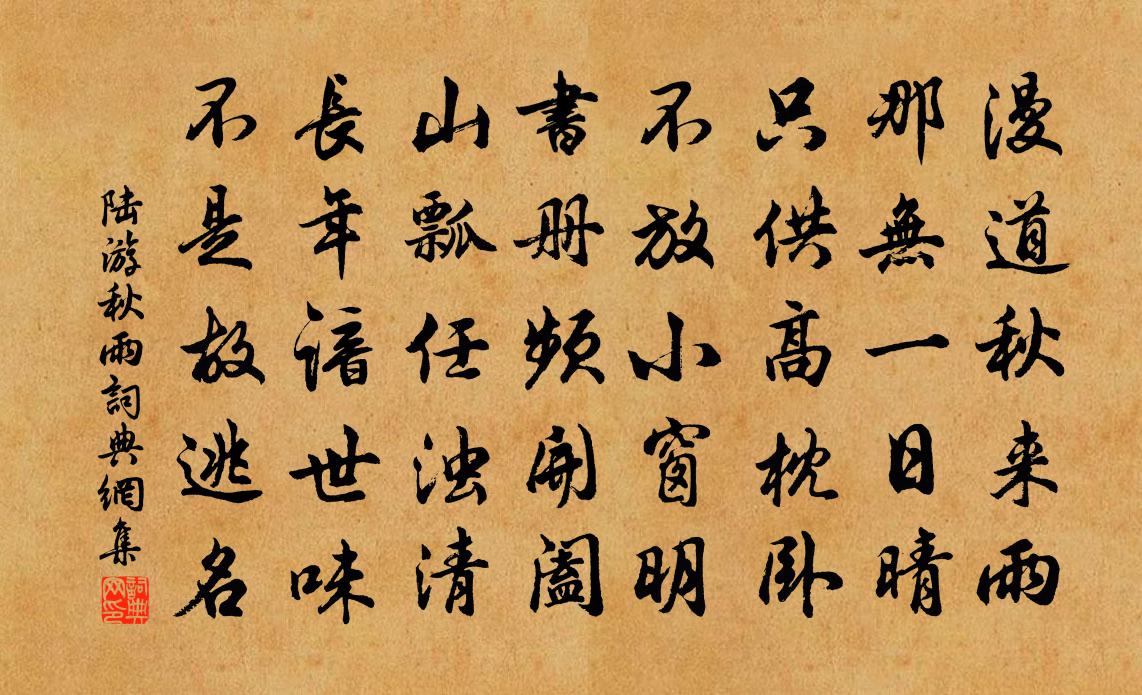 漫道秋来雨
那無一日晴
只供高枕卧
不放小窗明
書册頻開闔
山瓢任浊清
長年諳世味
不是故逃名
陆游秋雨詞典網集
詞典网印